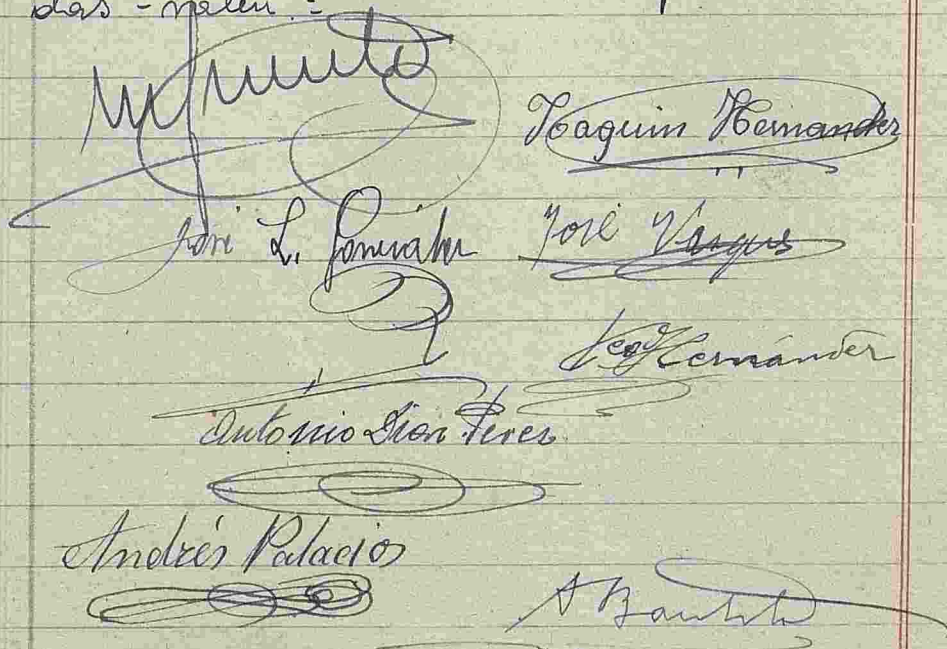 das - valen. =
Joaquin Hernandez
José L. González
José Vargas
Hernández
Antonio Dion Perez
Andrés Palacios
A Bautista